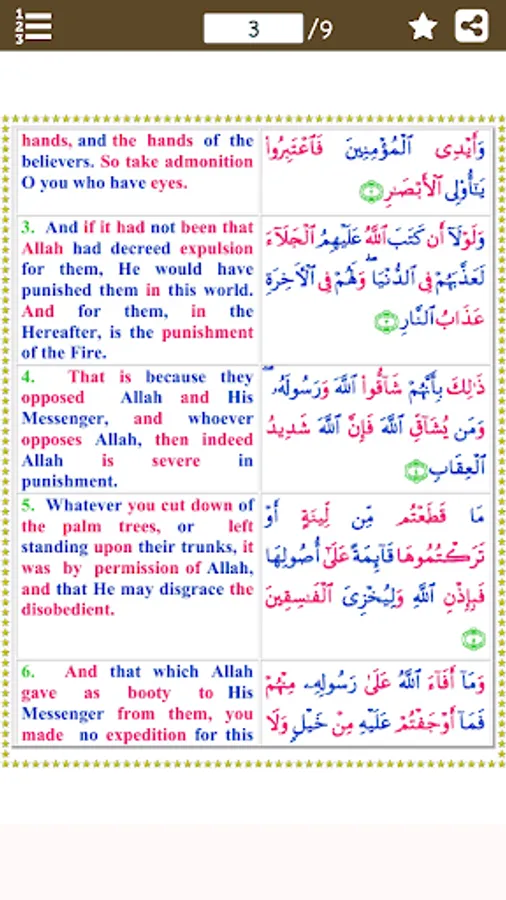 1 2 3
3 /9
hands, and the hands of the
believers. So take admonition
O you who have eyes.
وَأَيْدِى ٱلْمُؤْمِنِينَ فَٱعْتَبِرُوا۟
يَـٰٓأُو۟لِى ٱلْأَبْصَـٰرِ ٢
3. And if it had not been that
Allah had decreed expulsion
for them, He would have
punished them in this world.
And for them, in the
Hereafter, is the punishment
of the Fire.
وَلَوْلَآ أَن كَتَبَ ٱللَّهُ عَلَيْهِمُ ٱلْجَلَآءَ
لَعَذَّبَهُمْ فِى ٱلدُّنْيَا ۖ وَلَهُمْ فِى ٱلْـَٔاخِرَةِ
عَذَابُ ٱلنَّارِ ٣
4. That is because they
opposed Allah and His
Messenger, and whoever
opposes Allah, then indeed
Allah is severe in
punishment.
ذَٰلِكَ بِأَنَّهُمْ شَآقُّوا۟ ٱللَّهَ وَرَسُولَهُۥ ۖ
وَمَن يُشَآقِّ ٱللَّهَ فَإِنَّ ٱللَّهَ شَدِيدُ
ٱلْعِقَابِ ٤
5. Whatever you cut down of
the palm trees, or left
standing upon their trunks, it
was by permission of Allah,
and that He may disgrace the
disobedient.
مَا قَطَعْتُم مِّن لِّينَةٍ أَوْ
تَرَكْتُمُوهَا قَآئِمَةً عَلَىٰٓ أُصُولِهَا
فَبِإِذْنِ ٱللَّهِ وَلِيُخْزِىَ ٱلْفَـٰسِقِينَ
٥
6. And that which Allah
gave as booty to His
Messenger from them, you
made no expedition for this
وَمَآ أَفَآءَ ٱللَّهُ عَلَىٰ رَسُولِهِۦ مِنْهُمْ
فَمَآ أَوْجَفْتُمْ عَلَيْهِ مِنْ خَيْلٍ وَلَا